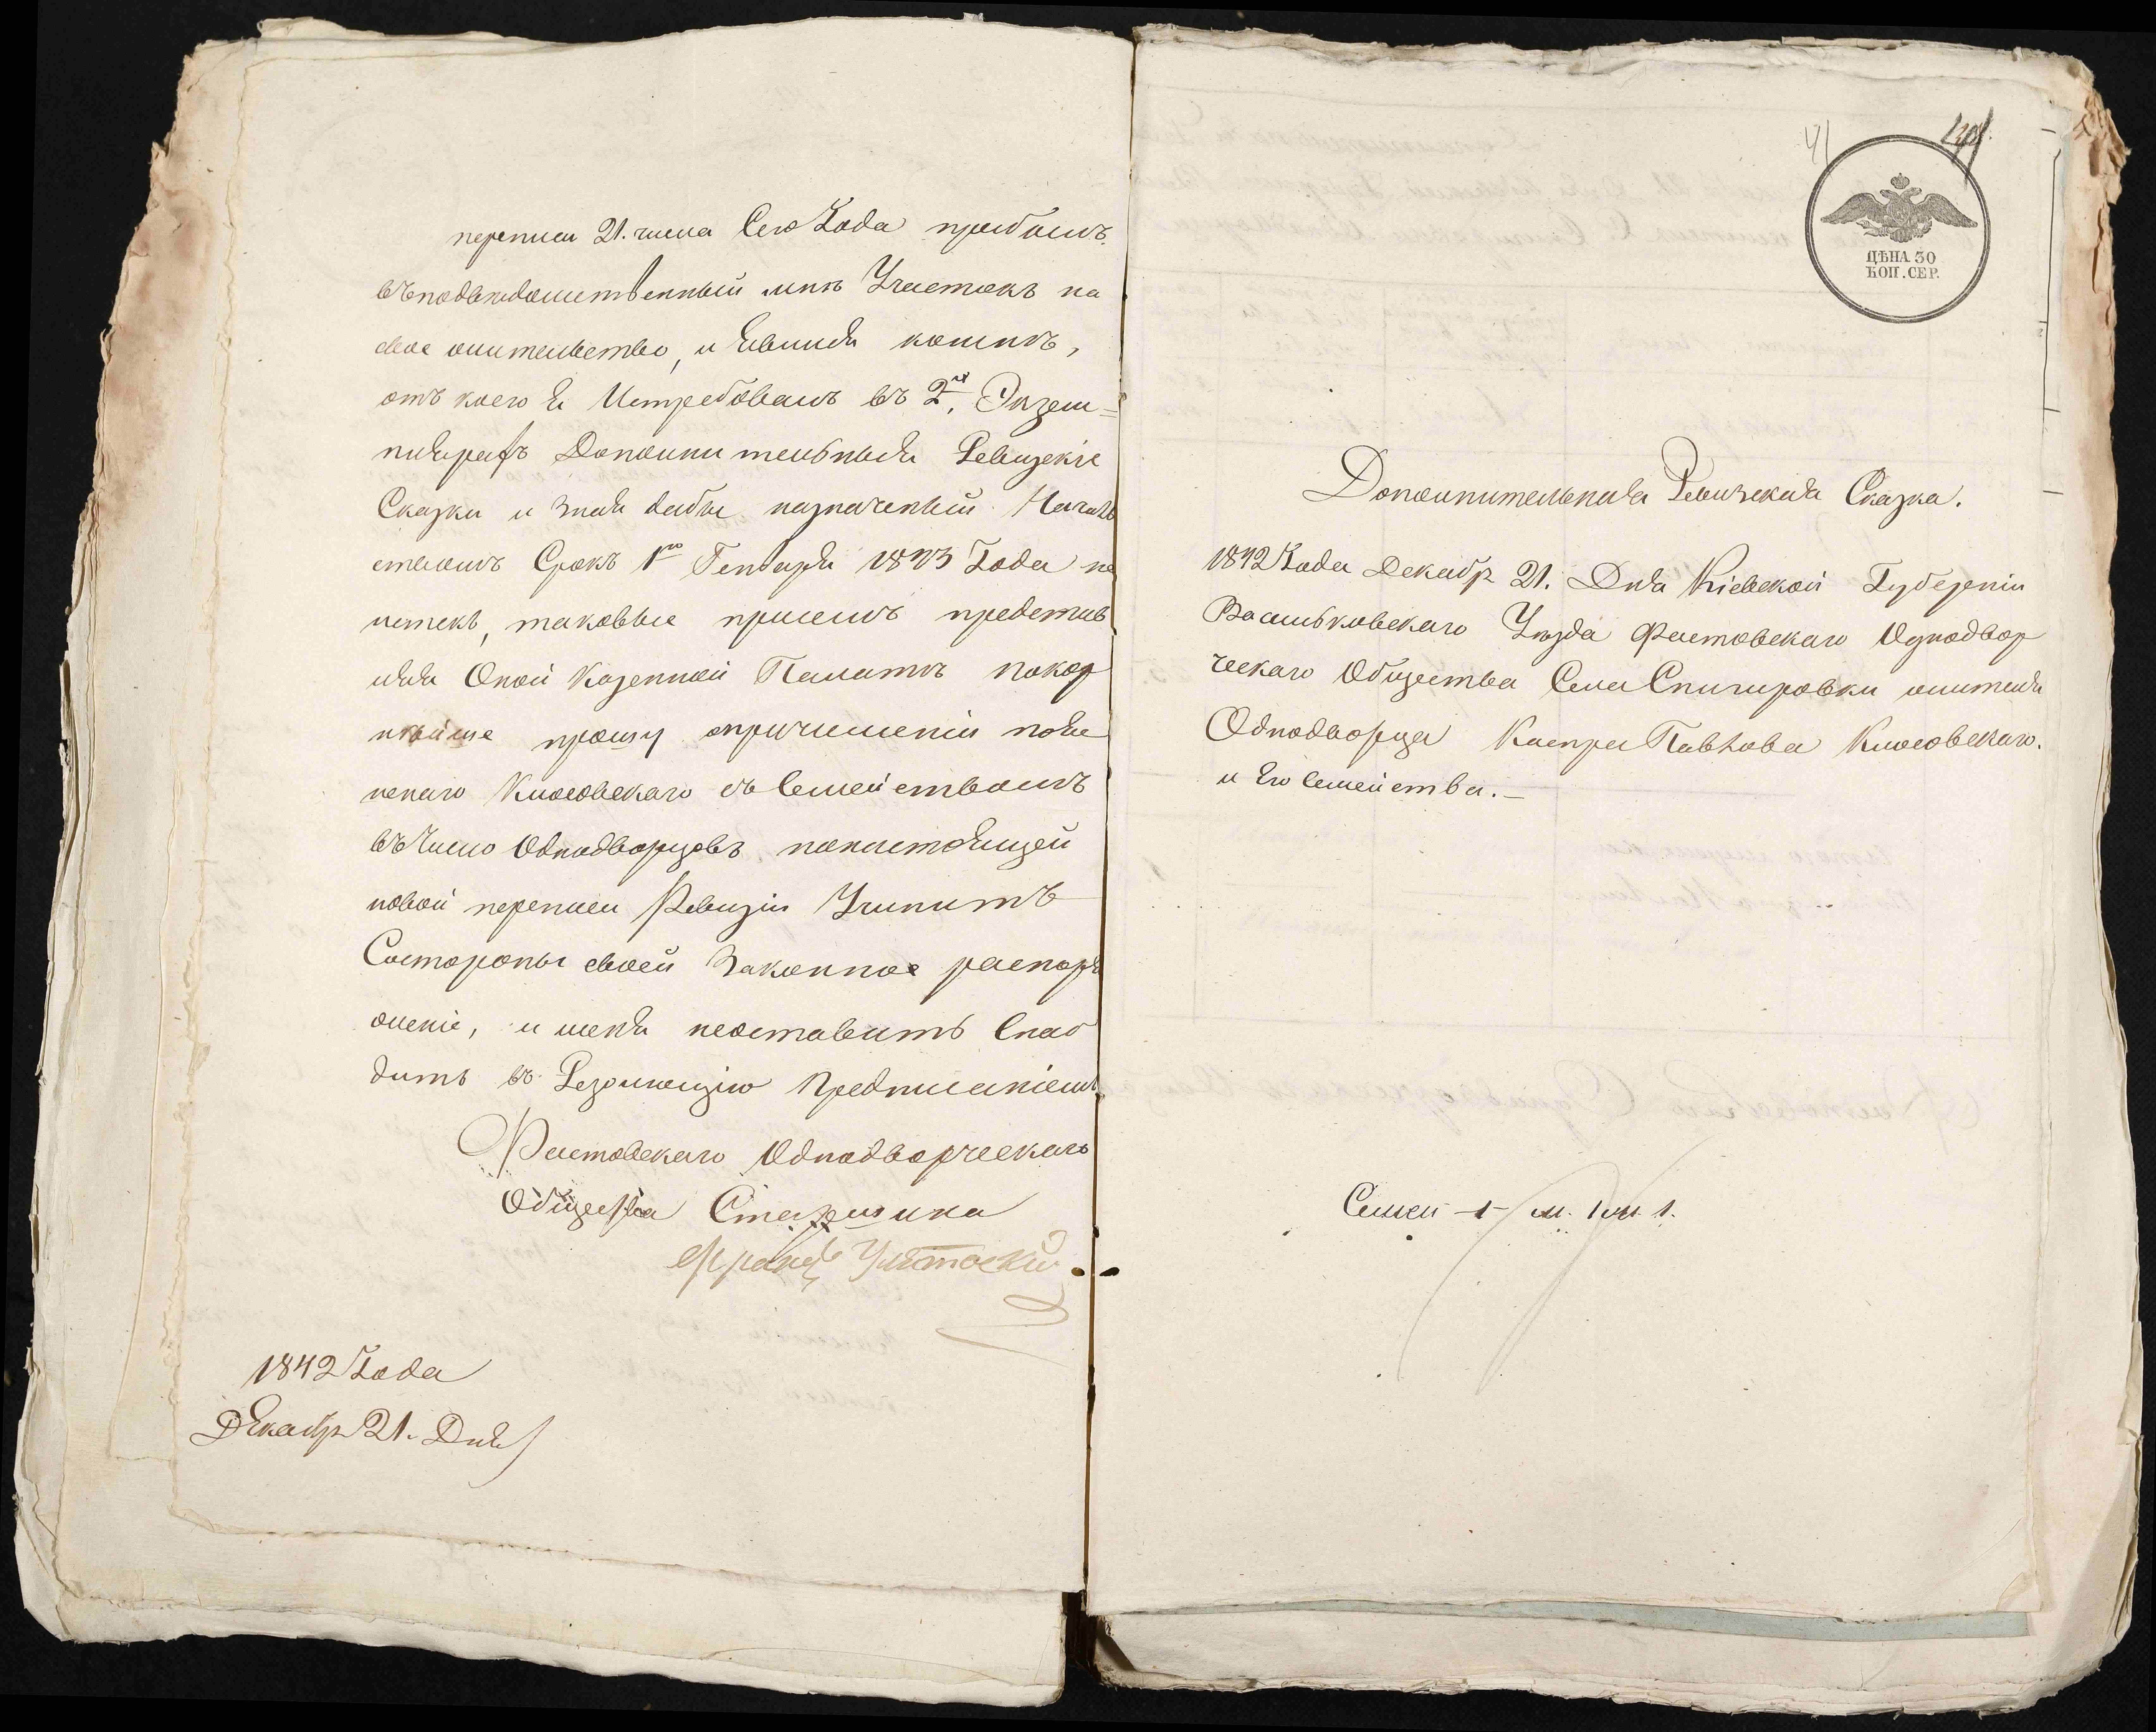 переписи 21. числа Сего Года прибылъ
въ подведомственный мнѣ Участокъ на
свое жительство, и Явился комнѣ,
отъ коего Я Истребовалъ въ 2хъ, Экзем=
плярахъ Дополнительныя Ревизскіе
Сказки и зная дабы назначеный Началь
ствомъ Срокъ 1го Генваря 1843 Года не
истекъ, таковые присемъ представ
ляя Оной Казенной Палатѣ покор
нѣйше прошу опричисленіи пояс
неного Клосовскаго съ Семействомъ
въ Число Однодворцовъ понастоящей
новой переписи Ревизіи Учинить
Состороны своей Законное распоря
женіе, и меня неоставить Снаб
дить въ Резолюцію Предписаніемъ,
Фастовскаго Однодворческаго
Общества Старшина
Францъ
1842 Года
Декабр 21. Дня
41
ЦѢНА 30
КОП. СЕР.
Дополнительная Ревизская Сказка.
1842 Года Декабр 21. Дня Кіевской Губерніи
Васильковскаго Уѣзда Фастовскаго Однодвор
ческаго Общества Села Снигировки жителя
Однодворца Каспра Павлова Клосовскаго.
и Его Семейства.—
Семей -1- м. 1 ж. 1.